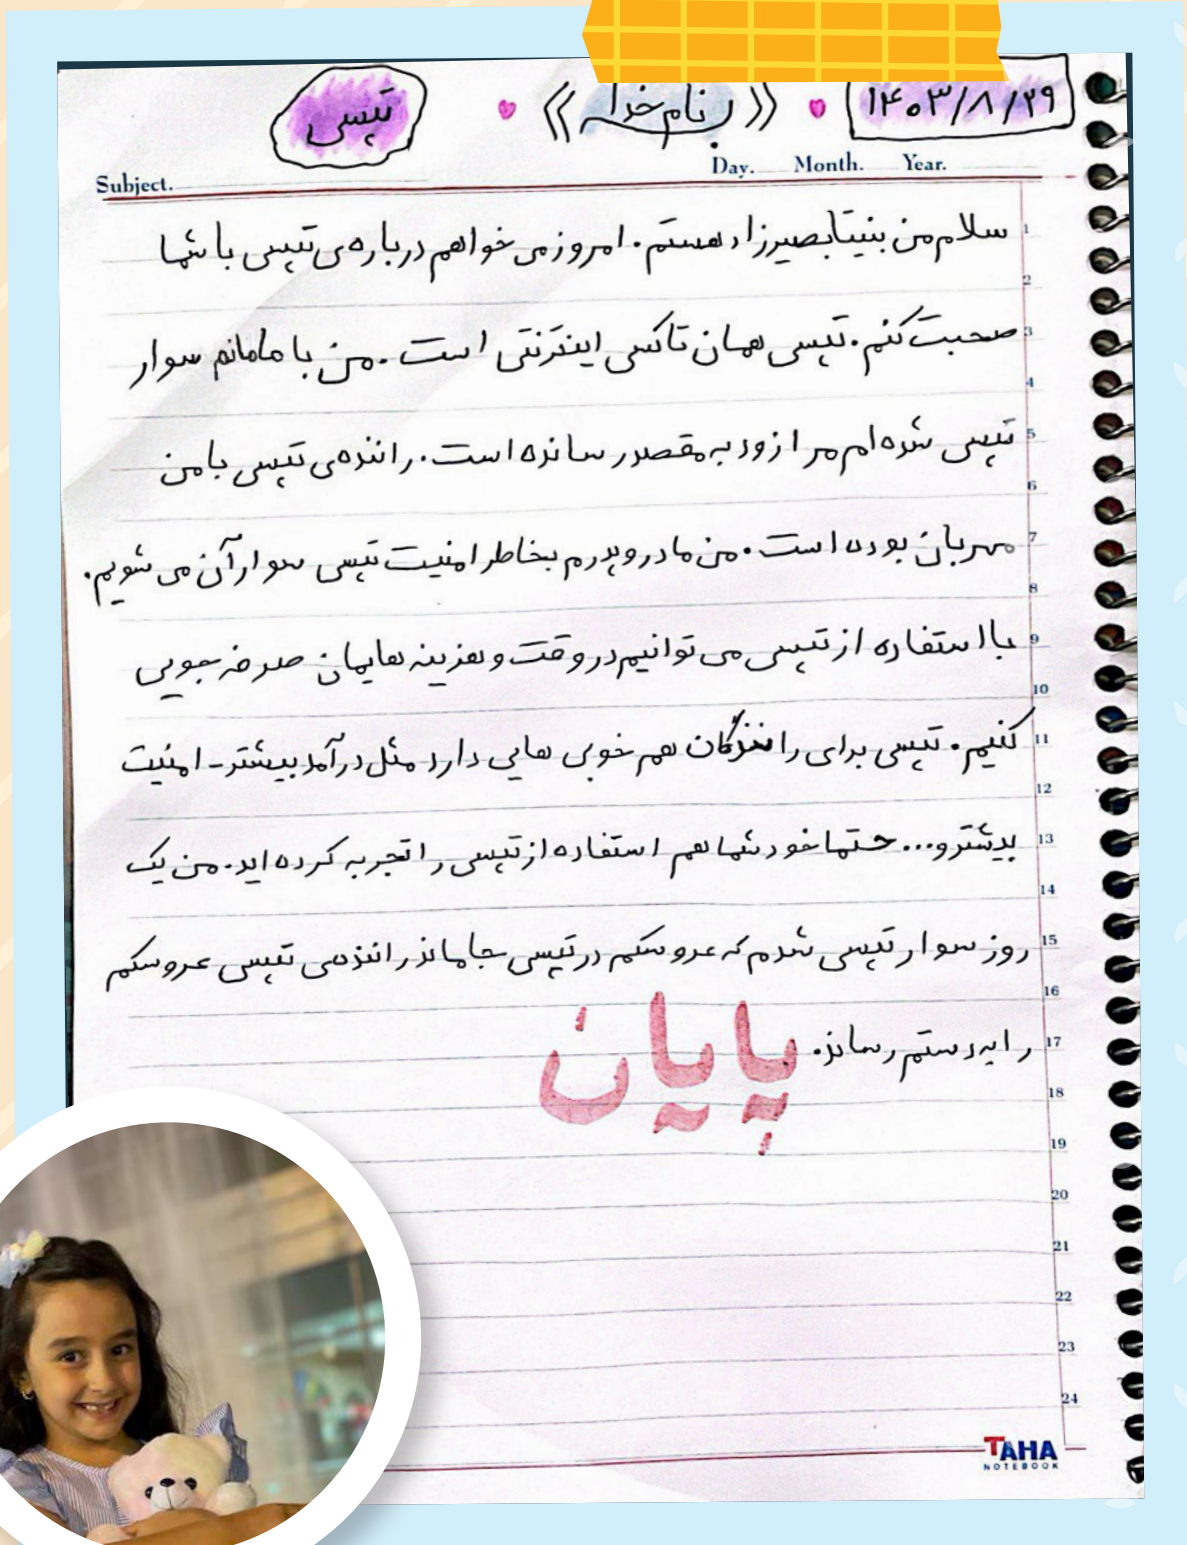 ۱۴۰۳/۸/۲۹
« بنام خدا »
تپسی
Subject. Day. Month. Year.
1 سلام من بنیتا بصیرزاده هستم. امروز می خواهم درباره‌ی تپسی با شما
2
3 صحبت کنم. تپسی همان تاکسی اینترنتی است. من با مامانم سوار
4
5 تپسی شده ام مرا زود به مقصد رسانده است. راننده‌ی تپسی با من
6
7 مهربان بوده است. من مادر و پدرم بخاطر امنیت تپسی سوار آن می شویم.
8
9 با استفاده از تپسی می توانیم در وقت و هزینه هایمان صرفه جویی
10
11 کنیم. تپسی برای رانندگان هم خوبی هایی دارد مثل درآمد بیشتر - امنیت
12
13 بیشتر و... حتما خود شما هم استفاده از تپسی را تجربه کرده اید. من یک
14
15 روز سوار تپسی شدم که عروسکم در تپسی جا ماند راننده‌ی تپسی عروسکم
16
17 را به دستم رساند.
پایان
18
19
20
21
22
23
24
TAHA
NOTEBOOK